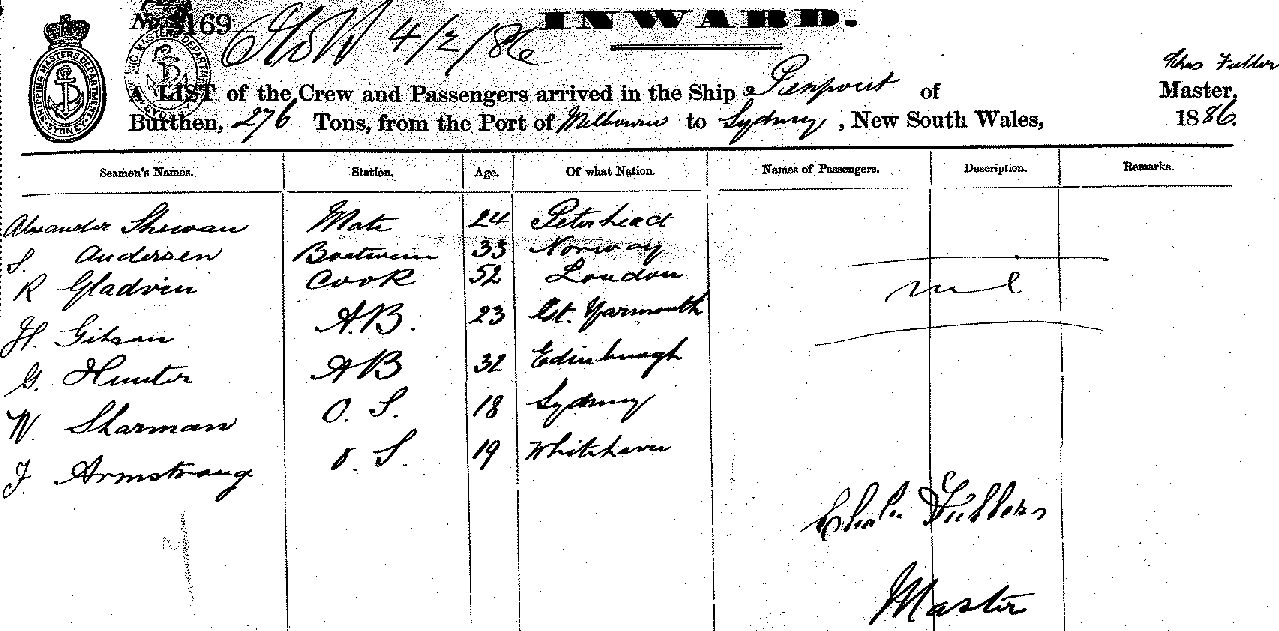 No. 169 INWARD.
4/2/86
Chas Fuller
A LIST of the Crew and Passengers arrived in the Ship Penpoint of Master,
Burthen, 276 Tons, from the Port of Melbourne to Sydney, New South Wales, 1886.
Seamen's Names. Station. Age. Of what Nation. Names of Passengers. Description. Remarks.
Alexander Shewan Mate 24 Peterhead
S. Andersen Boatswain 33 Norway
R Gladwin Cook 52 London
nil
H. Gibson A.B. 23 Gt. Yarmouth
G. Hunter AB 32 Edinburgh
W. Sharman O. S. 18 Sydney
J. Armstrong O. S. 19 Whitehaven
Chas. Fuller
Master